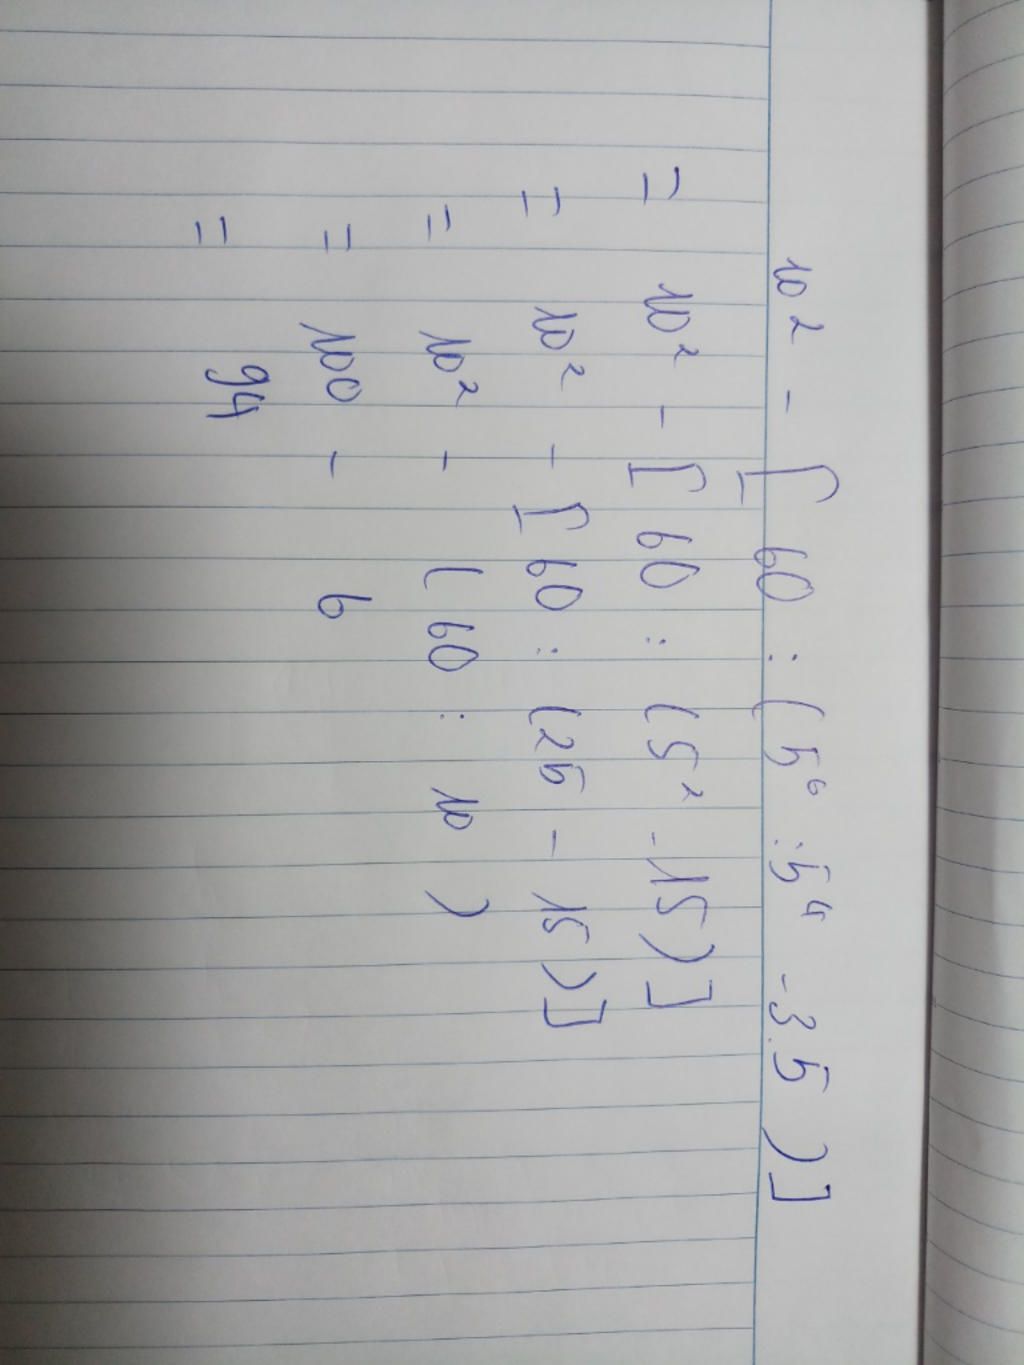 10² - [ 60 : ( 5⁶ : 5⁴ - 3.5 ) ]
= 10² - [ 60 : ( 5² - 15 ) ]
= 10² - [ 60 : ( 25 - 15 ) ]
= 10² - ( 60 : 10 )
= 100 - 6
= 94